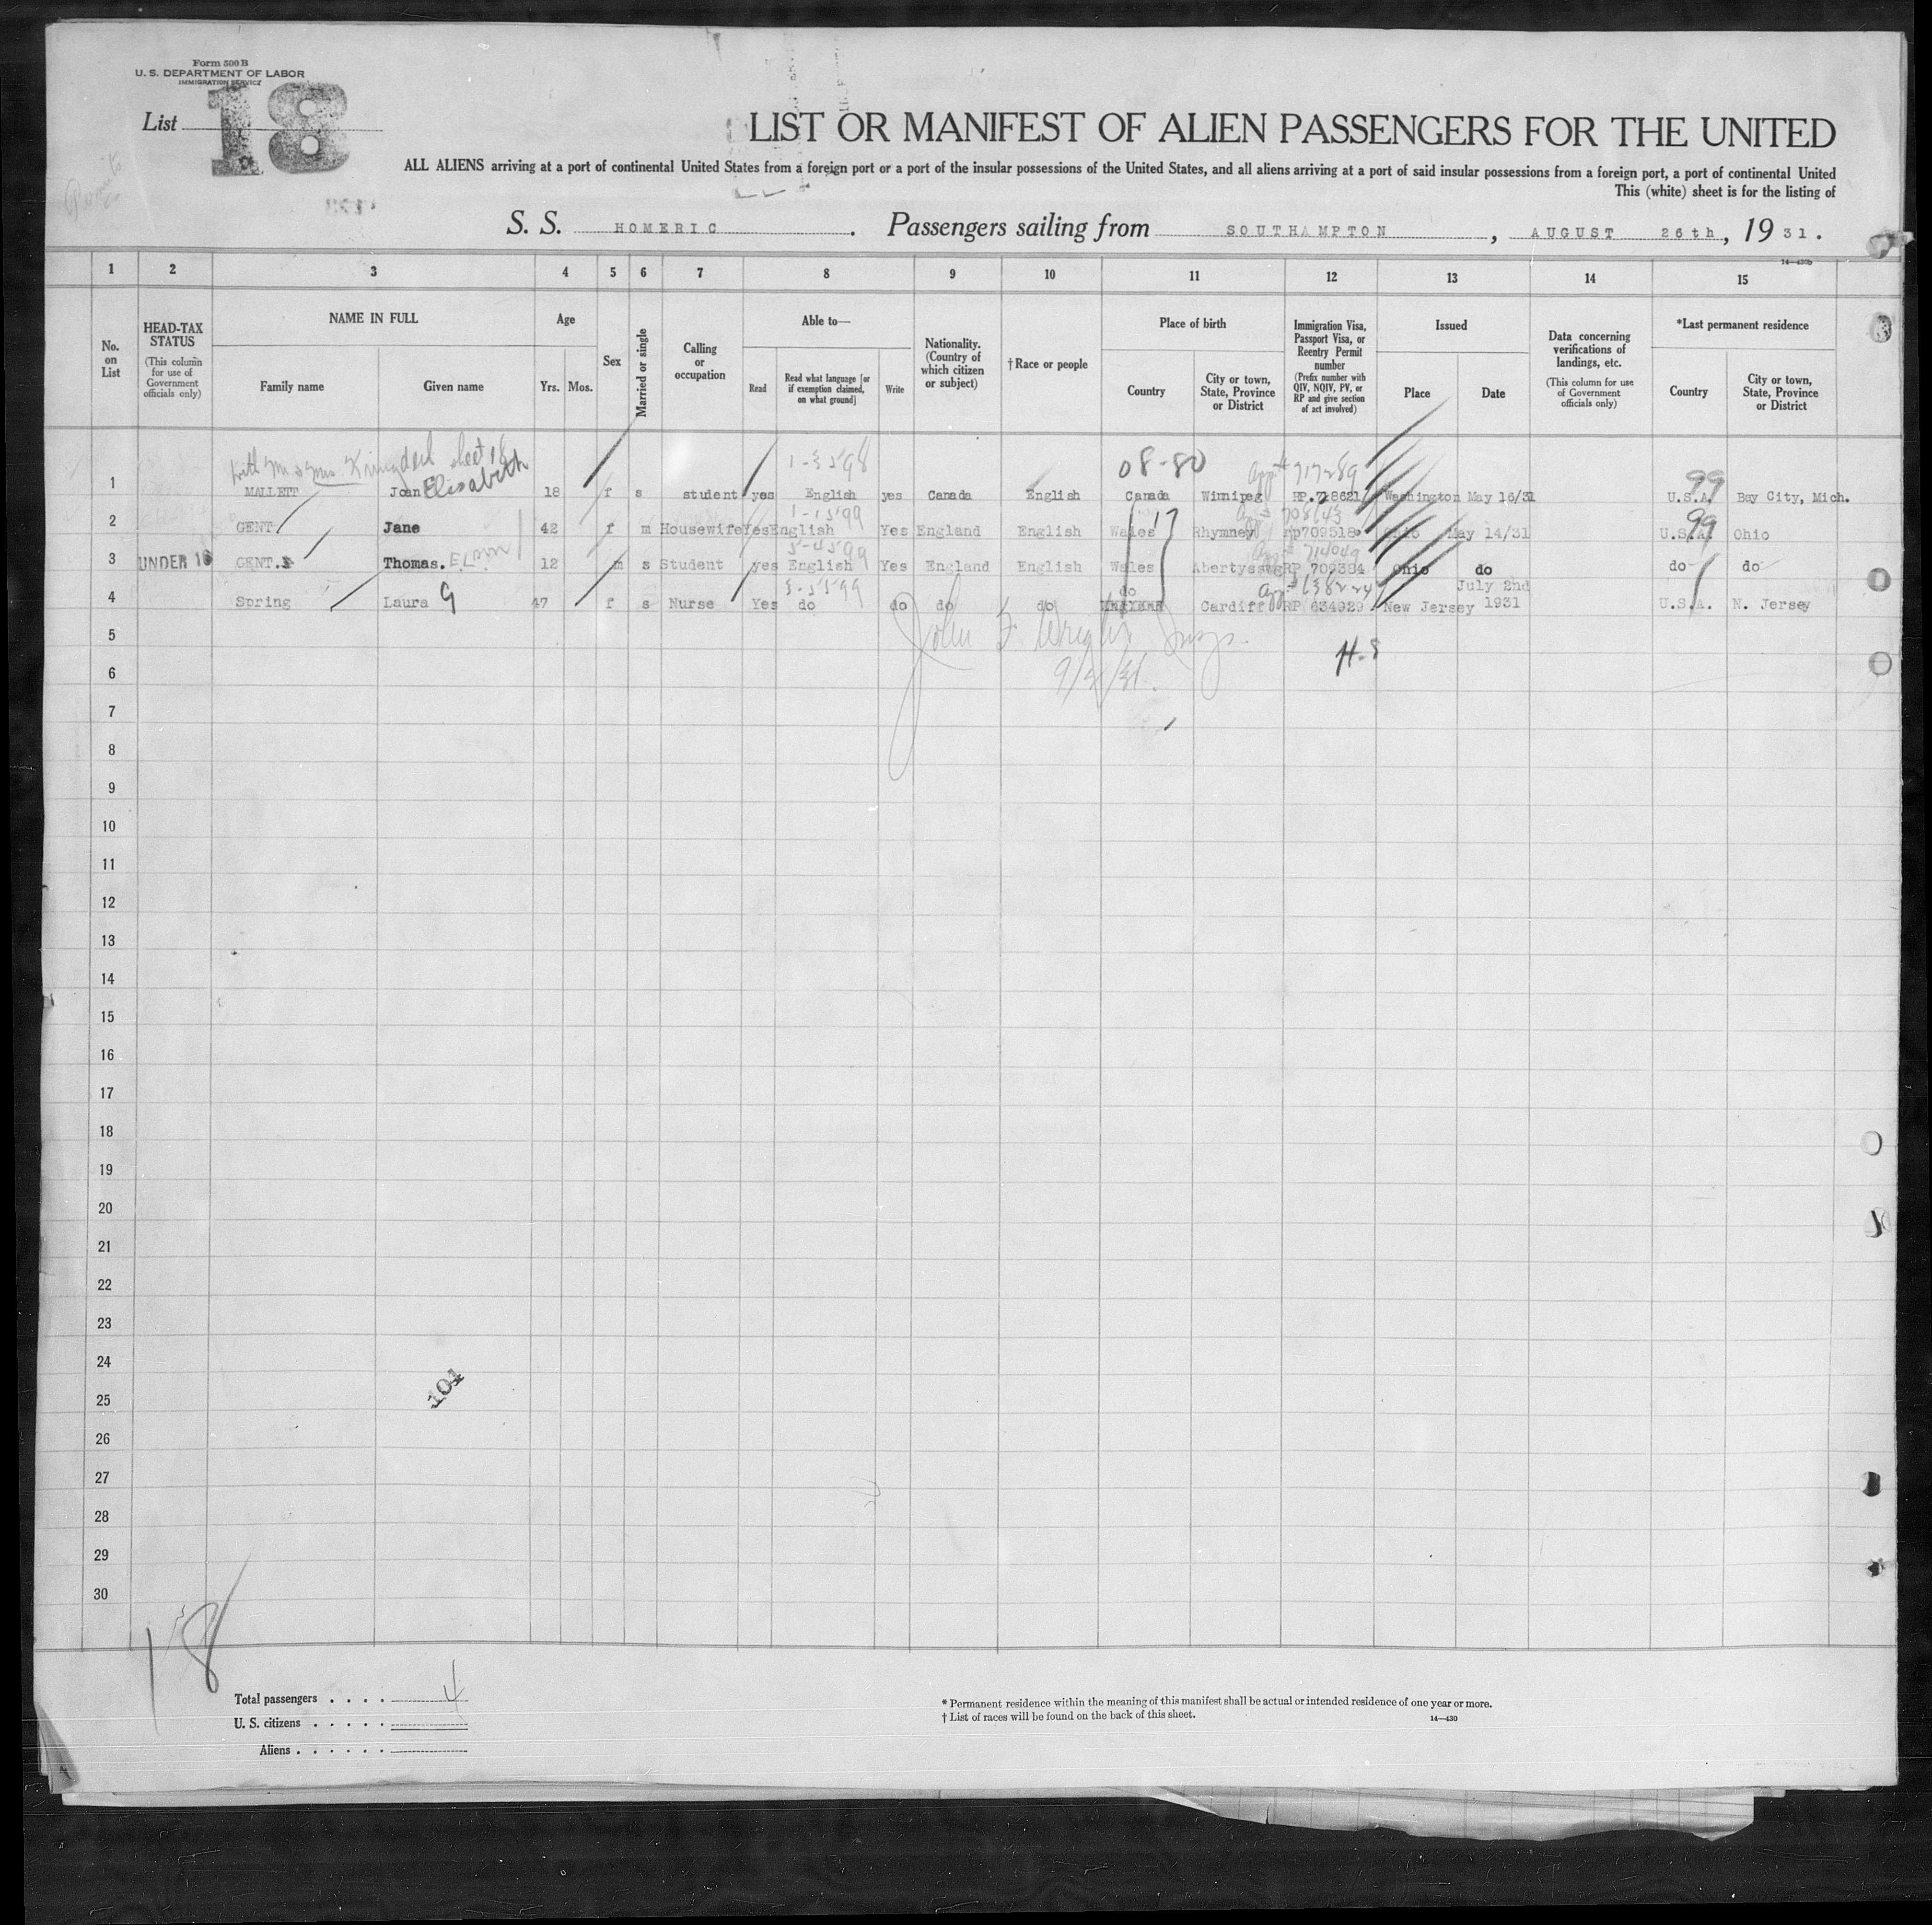 Form 500 B
U. S. DEPARTMENT OF LABOR
IMMIGRATION SERVICE
List 18
LIST OR MANIFEST OF ALIEN PASSENGERS FOR THE UNITED
ALL ALIENS arriving at a port of continental United States from a foreign port or a port of the insular possessions of the United States, and all aliens arriving at a port of said insular possessions from a foreign port, a port of continental United
This (white) sheet is for the listing of
S. S. HOMERIC. Passengers sailing from SOUTHAMPTON, AUGUST 26th, 1931.
14—430b
1 2 3 4 5 6 7 8 9 10 11 12 13 14 15
No. on List
HEAD-TAX STATUS
(This column for use of Government officials only)
NAME IN FULL
Family name
Given name
Age
Yrs. Mos.
Sex
Married or single
Calling or occupation
Able to—
Read
Read what language [or if exemption claimed, on what ground]
Write
Nationality. (Country of which citizen or subject)
† Race or people
Place of birth
Country
City or town, State, Province or District
Immigration Visa, Passport Visa, or Reentry Permit number
(Prefix number with QIV, NQIV, PV, or RP and give section of act involved)
Issued
Place
Date
Data concerning verifications of landings, etc.
(This column for use of Government officials only)
*Last permanent residence
Country
City or town, State, Province or District
with Mr & Mrs sheet 18
1-3598 08-80 717289 99
1 MALLETT Joan Elisabeth 18 f s student yes English yes Canada English Canada Winnipeg RP.718621 Washington May 16/31 U.S.A. Bay City, Mich.
1-1599 17 708643 99
2 GENT. Jane 42 f m Housewife Yes English Yes England English Wales Rhymney rp709518 Ohio May 14/31 U.S.A. Ohio
5-4599 714049
3 UNDER 16 GENT. Thomas. 12 m s Student yes English Yes England English Wales RP 709384 Ohio do do do
3-5599 do 638224 July 2nd
4 Spring Laura G 47 f s Nurse Yes do do do do Cardiff RP 634929 New Jersey 1931 U.S.A. N. Jersey
5
John F.
H.S
6
7
8
9
10
11
12
13
14
15
16
17
18
19
20
21
22
23
24
25
104
26
27
28
29
30
18
Total passengers . . . . 4
U. S. citizens . . . . .
Aliens . . . . . .
* Permanent residence within the meaning of this manifest shall be actual or intended residence of one year or more.
† List of races will be found on the back of this sheet.
14—430